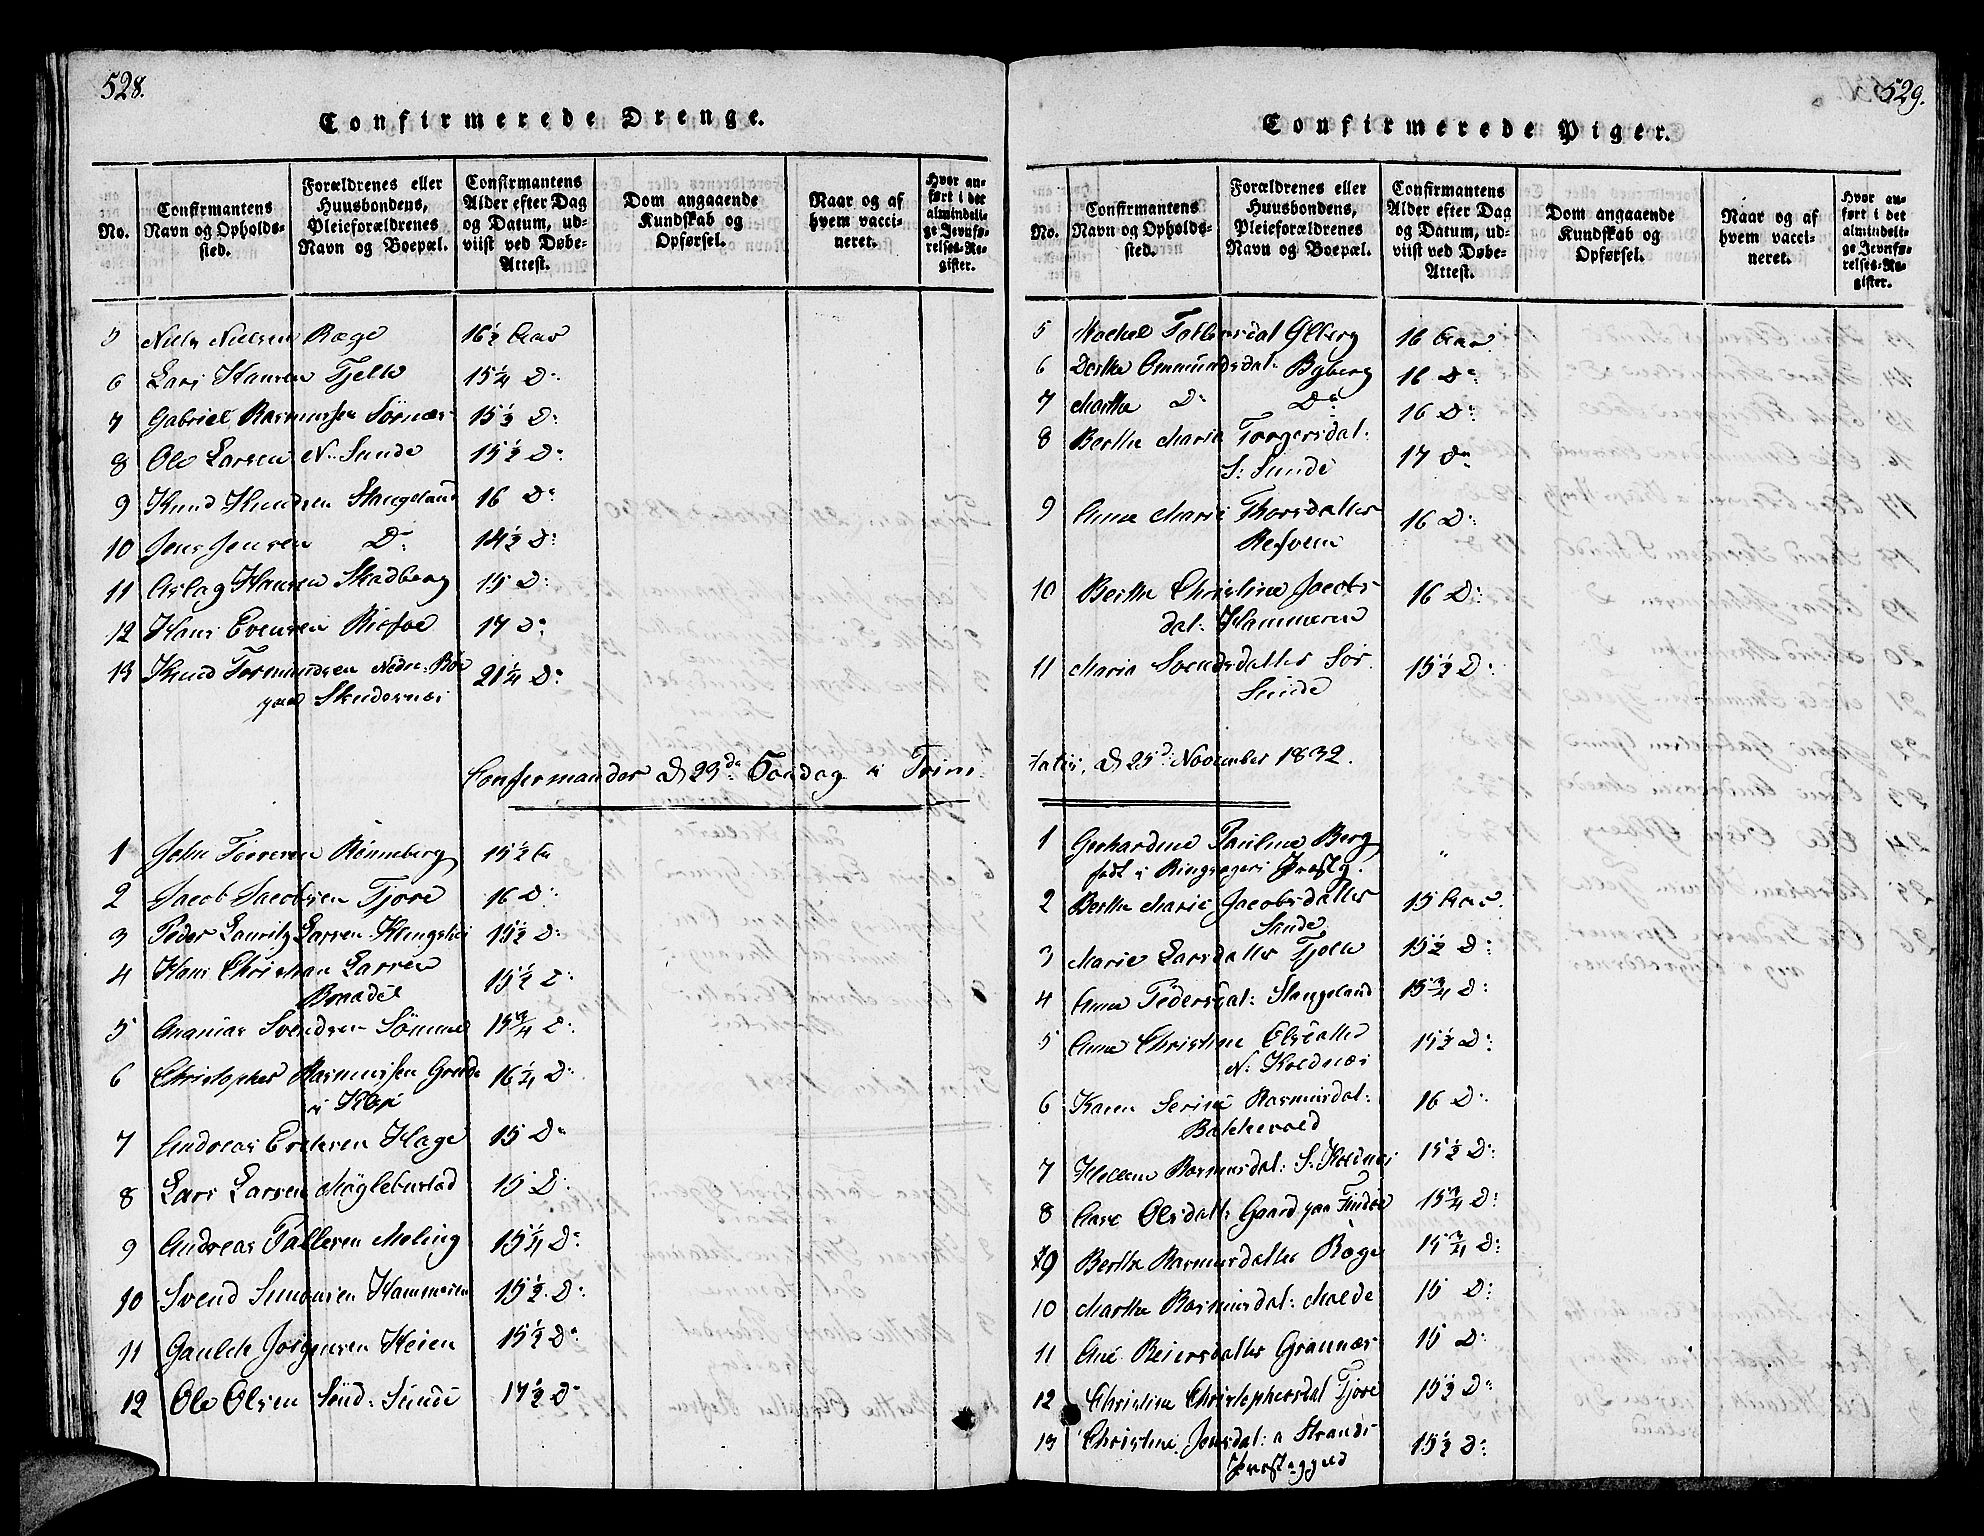 528.
Confirmerede Drenge.
No.
Confirmantens Navn og Opholds-sted.
Forældrenes eller Huusbondens, Pleieforældrenes Navn og Boepæl.
Confirmantens Alder efter Dag og Datum, ud-viist ved Døbe-Attest.
Dom angaaende Kundskab og Opførsel.
Naar og af hvem vacci-neret.
Hvor an-ført i det almindeli-ge Jevnfø-relses-Re-gister.
5 Niels Nielsen Ræge 16½ Aar
6 Lars Hansen Tjelle 15¼ D:
7 Gabriel Rasmussen Sörnæs 15½ D:
8 Ole Larsen N. Sunde 15½ D:
9 Knud Knudsen Stangeland 16 D:
10 Jens Jensen D: 14½ D:
11 Aslag Hansen Skadberg 15 D:
12 Hans Evensen Risfoe 17 D:
13 Knud Tormundsen Nedre Böe 21¼ D:
paa Skudesnæs
Confermander d 23de Søndag i Trini
1 John Torresen Rönneberg 15½ Aar
2 Jacob Jacobsen Tjore 16 D:
3 Peder Lauritz Larsen Klingshei 15½ D:
4 Hans Christian Larsen 15½ D:
5 Ananias Svendsen Sömme 15¾ D:
6 Christopher Rasmussen 16¼ D:
7 Andreas Hage 15 D:
8 Lars Larsen Mögleburstad 15 D:
9 Andreas Tallesen Meling 15¼ D:
10 Svend Simonsen Hammeren 15½ D:
11 Gaulde Jörgensen Heien 15½ D:
12 Ole Olsen Sönd: Sunde 17½ D:
529.
Confirmerede Piger.
No.
Confirmantens Navn og Opholds-sted.
Forældrenes eller Huusbondens, Pleieforældrenes Navn og Boepæl.
Confirmantens Alder efter Dag og Datum, ud-viist ved Døbe-Attest.
Dom angaaende Kundskab og Opførsel.
Naar og af hvem vacci-neret.
Hvor an-ført i det almindeli-ge Jevnfø-relses-Re-gister.
5 Rachel Ölberg 16 Aar
6 Dorthe Ommundsdal: Byberg 16 D:
7 Marthe D: D: 16 D:
8 Berthe Maria Torgersdal: 17 D:
S: Sunde
9 Anne Marie Thorsdatter 16 D:
Refvem
10 Berthe Christine Jacobs 16 D:
dal: Hammeren
11 Maria Svendsdatter Sör 15½ D:
Sunde
tatis, d 25d November 1832.
1 Gerhardine Pauline Berg "
födt i Ringsager Præstg.
2 Berthe Marie Jacobsdatter 15 Aar
Sunde
3 Marie Larsdatter Tjelle 15½ D:
4 Anne Pedersdal: Stangeland 15¾ D:
5 Anne Christine Olsdatter 15½ D:
N: Koldnæs
6 Karen Serine Rasmusdal: 16 D:
Bakkevold
7 Hellene Rasmusdal: S: Koldnæs 15½ D:
8 Aase Olsdatt: Gaard paa Findöe 15¾ D:
9 Berthe Rasmusdatter Ræge 15¾ D:
10 Marthe Rasmusdal: Molde 15 D:
11 Ane Beiersdatter Grannæs 15 D:
12 Christine Christophersdal Tjore 15½ D:
13 Christine Jensdal: a Strands 15½ D:
Præstegjeld